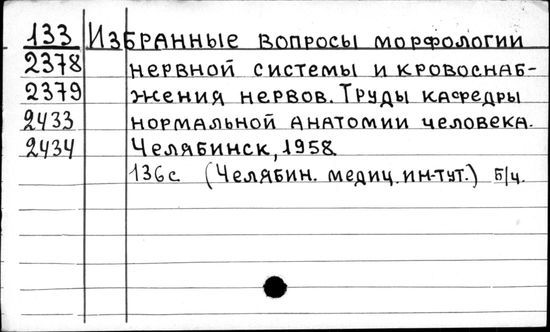 133 Избранные вопросы морфологии
2378 нервной системы и кровоснаб-
2379 жения нервов. Труды кафедры
2433 нормальной анатомии человека.
2434 Челябинск, 1958
136с (Челябин. медиц. ин-тут.) б/ц.